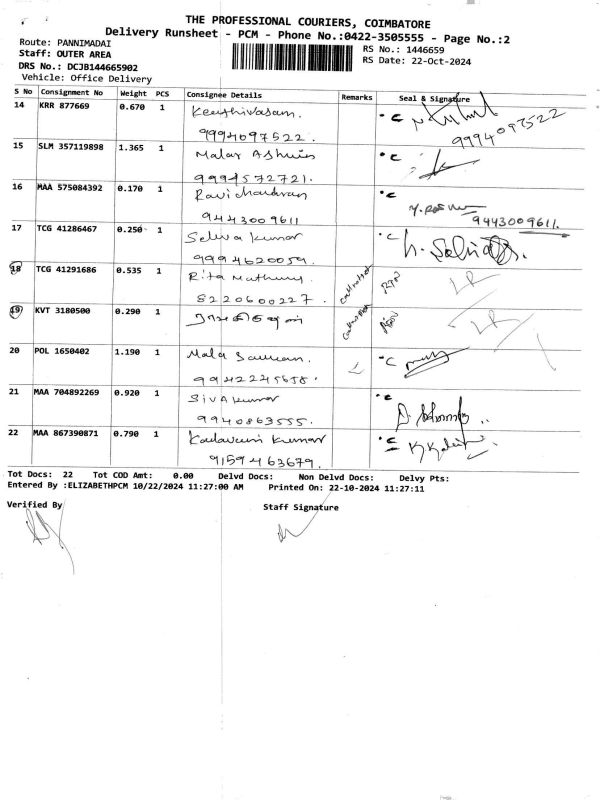 THE PROFESSIONAL COURIERS, COIMBATORE
Delivery Runsheet - PCM - Phone No.:0422-3505555 - Page No.:2
Route: PANNIMADAI
Staff: OUTER AREA
DRS No.: DCJB144665902
Vehicle: Office Delivery
RS No.: 1446659
RS Date: 22-Oct-2024
S No Consignment No Weight PCS Consignee Details Remarks Seal & Signature
14 KRR 877669 0.670 1 Keerthivasam.
9994097522. 9994097522
15 SLM 357119898 1.365 1 Malar Ashwin
9994572721.
16 MAA 575084392 0.170 1 Ravichandran
9443009611 9443009611.
17 TCG 41286467 0.250 1 Selva Kumar
9994620059.
18 TCG 41291686 0.535 1 Rita
8220600227. LR
19 KVT 3180500 0.290 1 LR
20 POL 1650402 1.190 1 Mala
9942245658.
21 MAA 704892269 0.920 1 Siva Kumar
9940863555.
22 MAA 867390871 0.790 1 Kumar
9159463679.
Tot Docs: 22 Tot COD Amt: 0.00 Delvd Docs: Non Delvd Docs: Delvy Pts:
Entered By :ELIZABETHPCM 10/22/2024 11:27:00 AM Printed On: 22-10-2024 11:27:11
Verified By Staff Signature